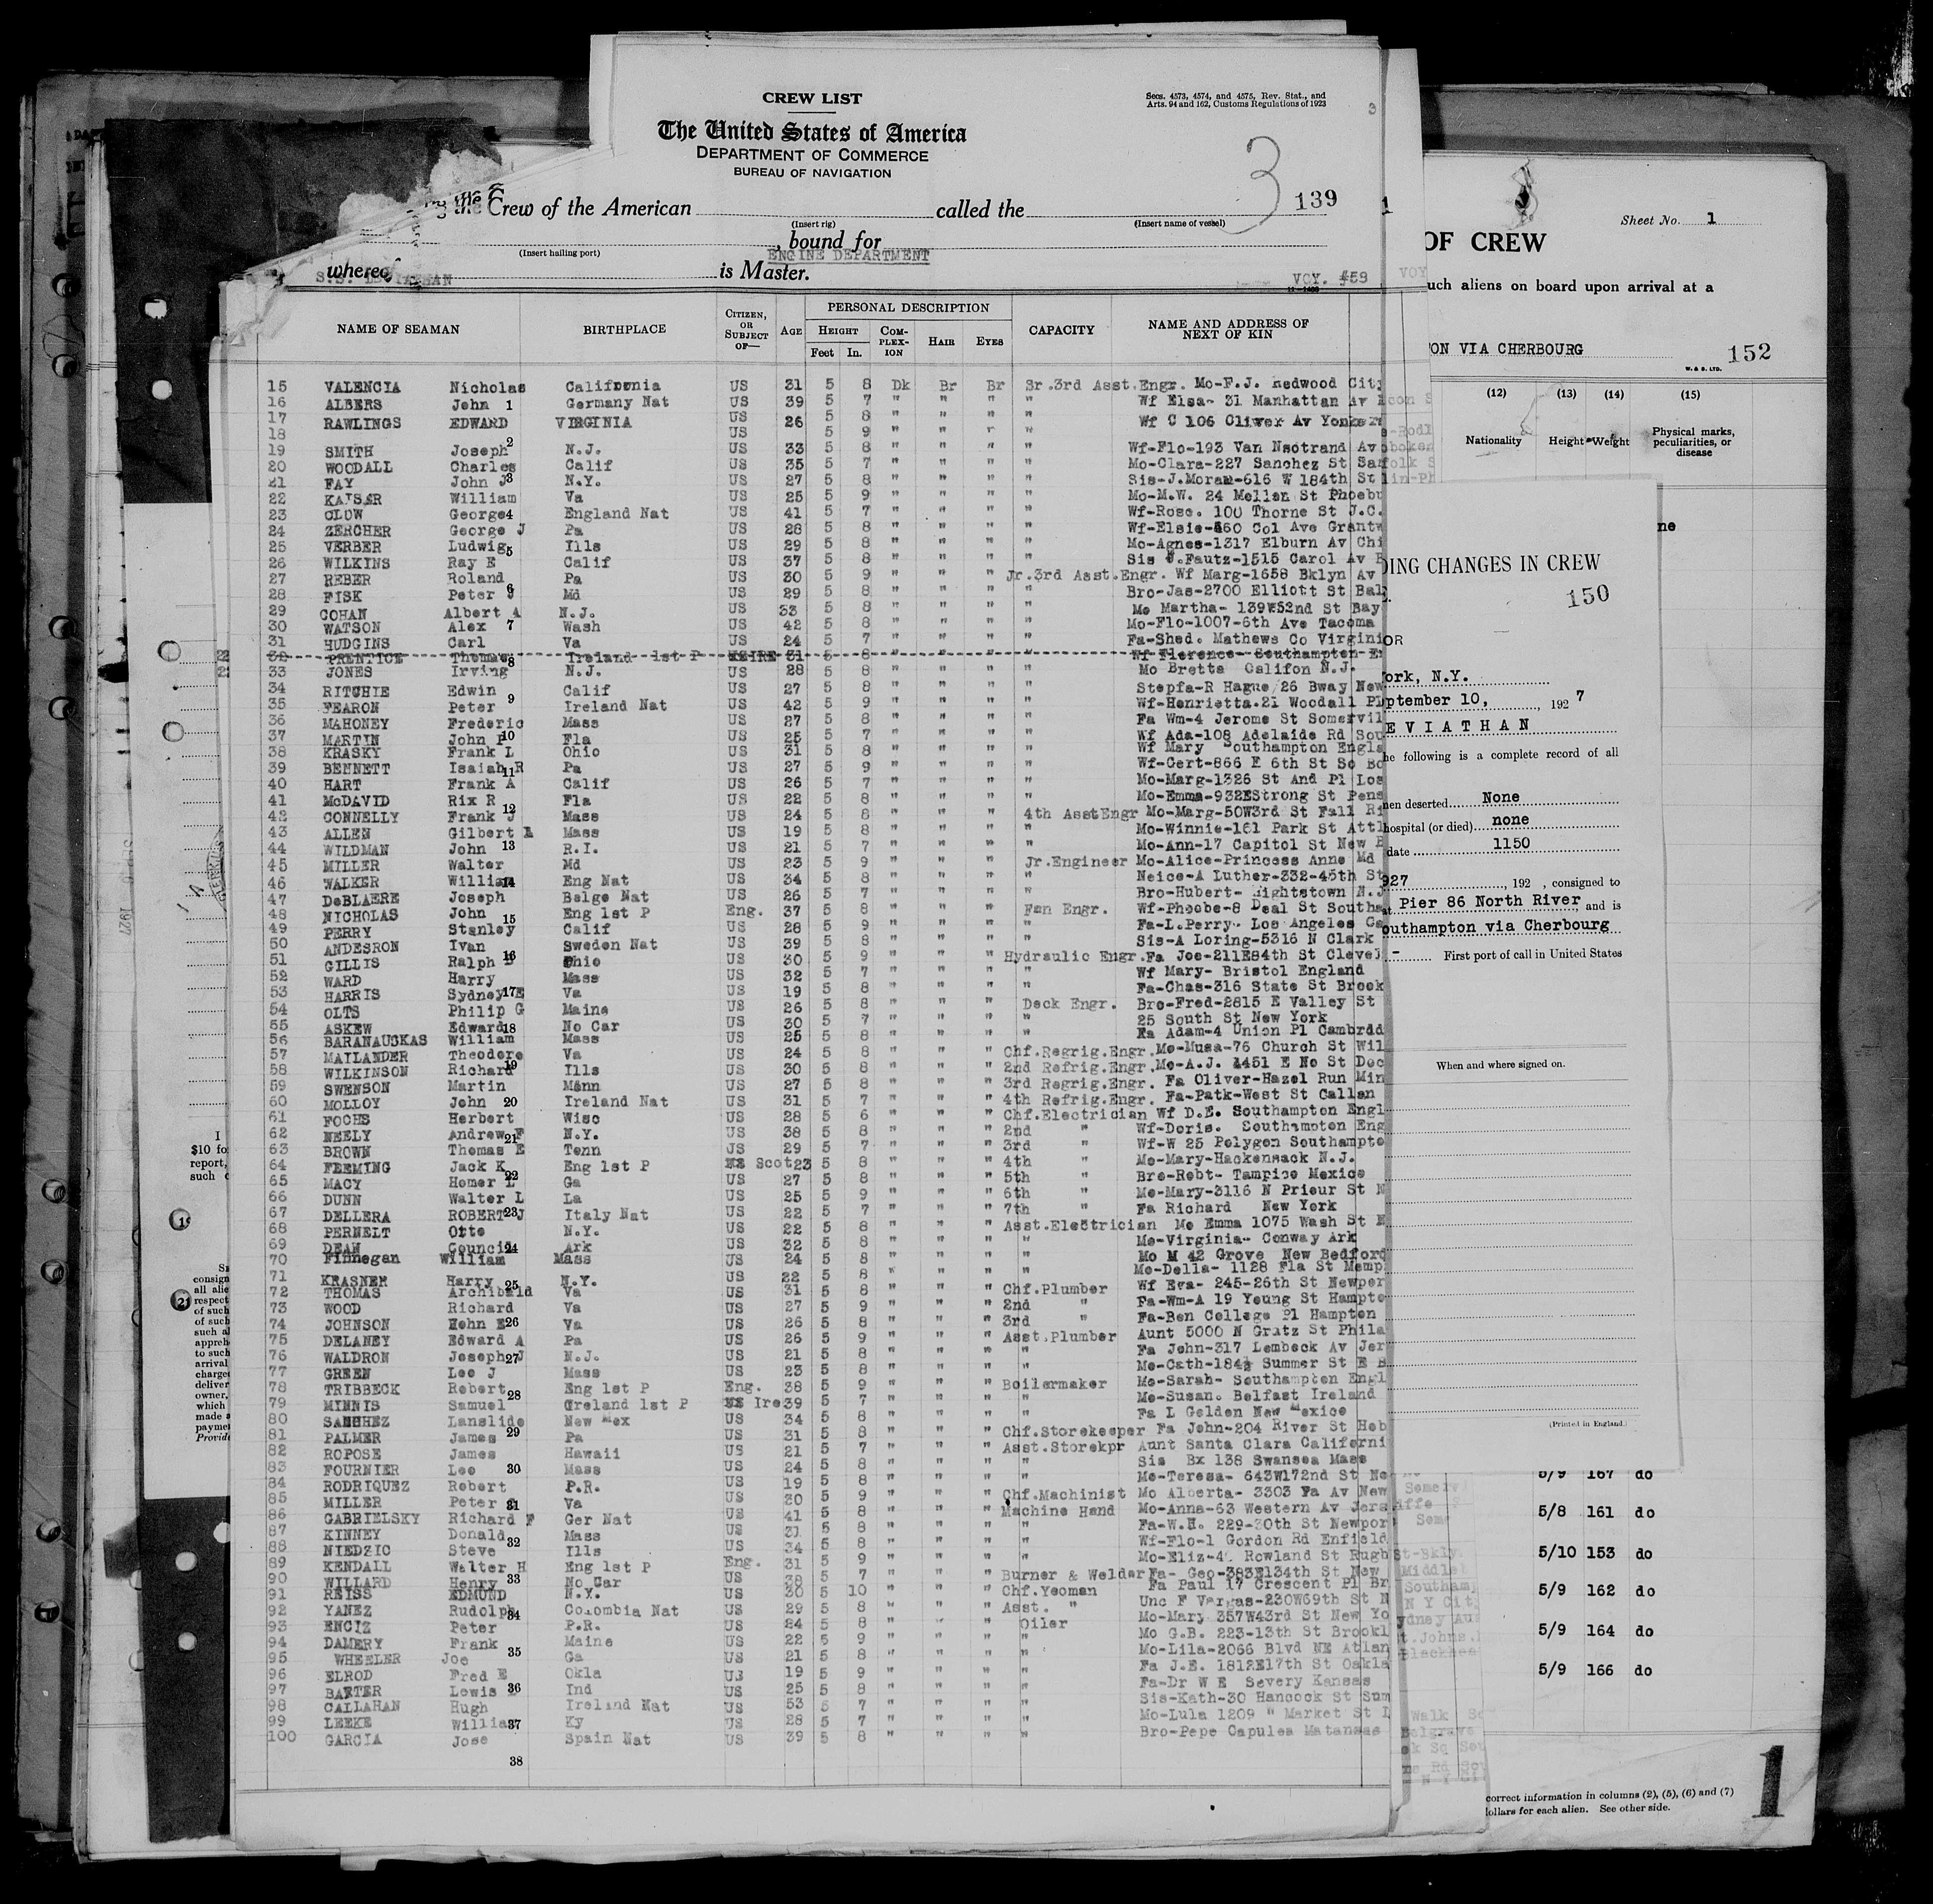 CREW LIST
Secs. 4573, 4574, and 4575, Rev. Stat., and
Arts. 94 and 162, Customs Regulations of 1923
3
The United States of America
DEPARTMENT OF COMMERCE
BUREAU OF NAVIGATION
3
139
the Crew of the American called the
(Insert rig) (Insert name of vessel)
, bound for
(Insert hailing port)
ENGINE DEPARTMENT
whereof is Master.
S.S. VOY. #59
NAME OF SEAMAN BIRTHPLACE CITIZEN, OR SUBJECT OF— AGE PERSONAL DESCRIPTION CAPACITY NAME AND ADDRESS OF NEXT OF KIN
HEIGHT COM-PLEX-ION HAIR EYES
Feet In.
15 VALENCIA Nicholas California US 31 5 8 Dk Br Br Sr.3rd Asst.Engr. Mo-F.J. Redwood City
16 ALBERS John 1 Germany Nat US 39 5 7 " " " " Wf Elsa- 31 Manhattan Av
17 RAWLINGS EDWARD VIRGINIA US 26 5 8 " " " " Wf C 106 Oliver Av Yonkers
18 US 5 9 " " " "
19 SMITH Joseph 2 N.J. US 33 5 8 " " " " Wf-Flo-193 Van Nsotrand Av
20 WOODALL Charles Calif US 35 5 7 " " " " Mo-Clara-227 Sanchez St Sa
21 FAY John J 3 N.Y. US 27 5 8 " " " " Sis-J.Moran-616 W 184th St
22 KAISER William Va US 25 5 9 " " " " Mo-M.W. 24 Mellen St Phoebu
23 CLOW George 4 England Nat US 41 5 7 " " " " Wf-Rose. 100 Thorne St J.C.
24 ZERCHER George J Pa US 28 5 8 " " " " Wf-Elsie-460 Col Ave Grantw
25 VERBER Ludwig 5 Ills US 29 5 8 " " " " Mo-Agnes-1317 Elburn Av Chi
26 WILKINS Ray E Calif US 37 5 8 " " " " Sis .Fautz-1515 Carol Av B
27 REBER Roland Pa US 30 5 9 " " " Jr.3rd Asst.Engr. Wf Marg-1658 Bklyn Av
28 FISK Peter J 6 Md US 29 5 8 " " " " Bro-Jas-2700 Elliott St Bal
29 COHAN Albert A N.J. US 33 5 8 " " " " Mo Martha- 139W52nd St Bay
30 WATSON Alex 7 Wash US 42 5 8 " " " " Mo-Flo-1007-6th Ave Tacoma
31 HUDGINS Carl Va US 24 5 7 " " " " Fa-Shed. Mathews Co Virgini
32 PRENTICE Thomas 8 Ireland 1st P US IRE 31 5 8 " " " " Wf Florence- Southampton-E
33 JONES Irving N.J. US 28 5 8 " " " " Mo Bretta Califon N.J.
34 RITCHIE Edwin Calif US 27 5 8 " " " " Stepfa-R Hague 26 Bway New
35 FEARON Peter 9 Ireland Nat US 42 5 9 " " " " Wf-Henrietta.21 Woodall Pl
36 MAHONEY Frederic Mass US 27 5 8 " " " " Fa Wm-4 Jerome St Somervil
37 MARTIN John P 10 Fla US 25 5 7 " " " " Wf Ada-108 Adelaide Rd Sou
38 KRASKY Frank L Ohio US 31 5 8 " " " " Wf Mary Southampton Engla
39 BENNETT Isaiah R 11 Pa US 27 5 9 " " " " Wf-Gert-866 E 6th St So Bo
40 HART Frank A Calif US 26 5 7 " " " " Mo-Marg-1326 St And Pl Los
41 McDAVID Rix R 12 Fla US 22 5 8 " " " " Mo-Emma-932EStrong St Pens
42 CONNELLY Frank J Mass US 24 5 8 " " " 4th AsstEngr Mo-Marg-50W3rd St Fall Ri
43 ALLEN Gilbert A Mass US 19 5 8 " " " " Mo-Winnie-161 Park St Attl
44 WILDMAN John 13 R.I. US 21 5 7 " " " " Mo-Ann-17 Capitol St New B
45 MILLER Walter Md US 23 5 9 " " " Jr.Engineer Mo-Alice-Princess Anne Md
46 WALKER William 14 Eng Nat US 34 5 8 " " " " Neice-A Luther-332-45th St
47 DeBLAERE Joseph Belge Nat US 26 5 7 " " " " Bro-Hubert- Hightstown N.J
48 NICHOLAS John 15 Eng 1st P Eng. 37 5 8 " " " Fan Engr. Wf-Phoebe-8 Deal St Southa
49 PERRY Stanley Calif US 28 5 9 " " " " Fa-L.Perry. Los Angeles Ca
50 ANDESRON Ivan Sweden Nat US 39 5 8 " " " " Sis-A Loring-5316 N Clark
51 GILLIS Ralph 16 Ohio US 30 5 9 " " " Hydraulic Engr. Fa Joe-211E84th St Clevel
52 WARD Harry Mass US 32 5 7 " " " " Wf Mary- Bristol England
53 HARRIS Sydney E 17 Va US 19 5 8 " " " " Fa-Chas-316 State St Brook
54 OLTS Philip G Maine US 26 5 8 " " " Deck Engr. Bro-Fred-2815 E Valley St
55 ASKEW Edward 18 No Car US 30 5 7 " " " " 25 South St New York
56 BARANAUCKAS William Mass US 25 5 8 " " " " Fa Adam-4 Union Pl Cambrdd
57 MAILANDER Theodore Va US 24 5 8 " " " Chf.Regrig.Engr. Mo-Musa-76 Church St Wil
58 WILKINSON Richard 19 Ills US 30 5 8 " " " 2nd Refrig.Engr. Mo-A.J. 1451 E No St Dec
59 SWENSON Martin Minn US 27 5 8 " " " 3rd Regrig.Engr. Fa Oliver-Hazel Run Min
60 MOLLOY John 20 Ireland Nat US 31 5 7 " " " 4th Refrig.Engr. Fa-Patk-West St Callan
61 FOCHS Herbert Wisc US 28 5 6 " " " Chf.Electrician Wf D.E. Southampton Engl
62 NEELY Andrew F 21 N.Y. US 38 5 8 " " " 2nd " Wf-Doris. Southampton Eng
63 BROWN Thomas E Tenn US 29 5 7 " " " 3rd " Wf-W 25 Polygon Southampto
64 FLEMING Jack K Eng 1st P US Scot 23 5 8 " " " 4th " Mo-Mary-Hackensack N.J.
65 MACY Homer L 22 Ga US 27 5 8 " " " 5th " Bro-Robt- Tampico Mexico
66 DUNN Walter L La US 25 5 9 " " " 6th " Mo-Mary-3116 N Prieur St N
67 DELLERA ROBERT J 23 Italy Nat US 22 5 7 " " " 7th " Fa Richard New York
68 PERNELT Otto N.Y. US 22 5 8 " " " Asst.Electrician Mo Emma 1075 Wash St
69 DEAN Council 24 Ark US 32 5 8 " " " " Mo-Virginia- Conway Ark
70 Finnegan William Mass US 24 5 8 " " " " Mo M 42 Grove New Bedford
Mo-Della- 1128 Fla St Memp
71 KRASNER Harry 25 N.Y. US 22 5 8 " " " "
72 THOMAS Archibald Va US 31 5 8 " " " Chf.Plumber Wf Eva- 245-26th St Newpor
73 WOOD Richard Va US 27 5 9 " " " 2nd " Fa-Wm-A 19 Young St Hampto
74 JOHNSON John E 26 Va US 26 5 8 " " " 3rd " Fa-Ben College Pl Hampton
75 DELANEY Edward A Pa US 26 5 9 " " " Asst.Plumber Aunt 5000 N Gratz St Phila
76 WALDRON Joseph J 27 N.J. US 21 5 8 " " " " Fa John-317 Lembeck Av Jer
77 GREEN Leo J Mass US 23 5 8 " " " " Mo-Cath-184½ Summer St E B
78 TRIBBECK Robert 28 Eng 1st P Eng. 38 5 9 " " " Boilermaker Mo-Sarah- Southampton Engl
79 MINNIS Samuel Ireland 1st P US Ire 39 5 7 " " " " Mo-Susan. Belfast Ireland
80 SANCHEZ Lanslido New Mex US 34 5 8 " " " " Fa L Golden New Mexico
81 PALMER James 29 Pa US 31 5 8 " " " Chf.Storekeeper Fa John-204 River St Hob
82 ROPOSE James Hawaii US 21 5 7 " " " Asst.Storekpr Aunt Santa Clara Californi
83 FOURNIER Leo 30 Mass US 24 5 8 " " " " Sis Bx 138 Swansea Mass
84 RODRIQUEZ Robert P.R. US 19 5 8 " " " " Mo-Teresa- 643W172nd St Ne
85 MILLER Peter 31 Va US 30 5 9 " " " Chf.Machinist Mo Alberta- 3303 Pa Av New
86 GABRIELSKY Richard F Ger Nat US 41 5 8 " " " Machine Hand Mo-Anna-63 Western Av Jers
87 KINNEY Donald Mass US 31 5 8 " " " " Fa-W.H. 229-30th St Newpor
88 NIEDZIC Steve 32 Ills US 34 5 8 " " " " Wf-Flo-1 Gordon Rd Enfield
89 KENDALL Walter H Eng 1st P Eng. 31 5 9 " " " " Mo-Eliz-4 Rowland St Rugb
90 WILLARD Henry 33 No Car US 38 5 7 " " " Burner & Welder Fa- Geo-383E134th St New
91 REISS EDMUND N.Y. US 30 5 10 " " " Chf.Yeoman Fa Paul 17 Crescent Pl Br
92 YANEZ Rudolph 34 Colombia Nat US 29 5 8 " " " Asst. " Unc F Vargas-230W69th St N
93 ENCIZ Peter P.R. US 24 5 8 " " " Oiler Mo-Mary 357W43rd St New Yo
94 DAMERY Frank 35 Maine US 22 5 9 " " " " Mo G.B. 223-13th St Brookl
95 WHEELER Joe Ga US 21 5 8 " " " " Mo-Lila-2066 Blvd NE Atlan
96 ELROD Fred E Okla US 19 5 9 " " " " Fa J.E. 1812E17th St Oakla
97 BAXTER Lewis 36 Ind US 25 5 8 " " " " Fa-Dr W E Severy Kansas
98 CALLAHAN Hugh Ireland Nat US 53 5 7 " " " " Sis-Kath-30 Hancock St Sum
99 LEEKE William 37 Ky US 28 5 7 " " " " Mo-Lula 1209 " Market St
100 GARCIA Jose Spain Nat US 39 5 8 " " " " Bro-Pepe Capulea Matansas
38
Sheet No. 1
OF CREW
uch aliens on board upon arrival at a
ON VIA CHERBOURG
152
W. & S. LTD.
(12) (13) (14) (15)
Nationality Height Weight Physical marks, peculiarities, or disease
ne
DING CHANGES IN CREW
150
OR
ork, N.Y.
ptember 10, 1927
EVIATHAN
he following is a complete record of all
men deserted None
hospital (or died) none
date 1150
927 , 192 , consigned to
at Pier 86 North River, and is
outhampton via Cherbourg
- First port of call in United States
When and where signed on.
(Printed in England.)
5/9 167 do
5/8 161 do
5/10 153 do
5/9 162 do
5/9 164 do
5/9 166 do
correct information in columns (2), (5), (6) and (7)
dollars for each alien. See other side.
1
I
$10 fo
report,
such
consign
all alie
respect
of such
of such
such al
appreh
to such
arrival
charge
deliver
owner,
which
made a
payme
Provide
1927